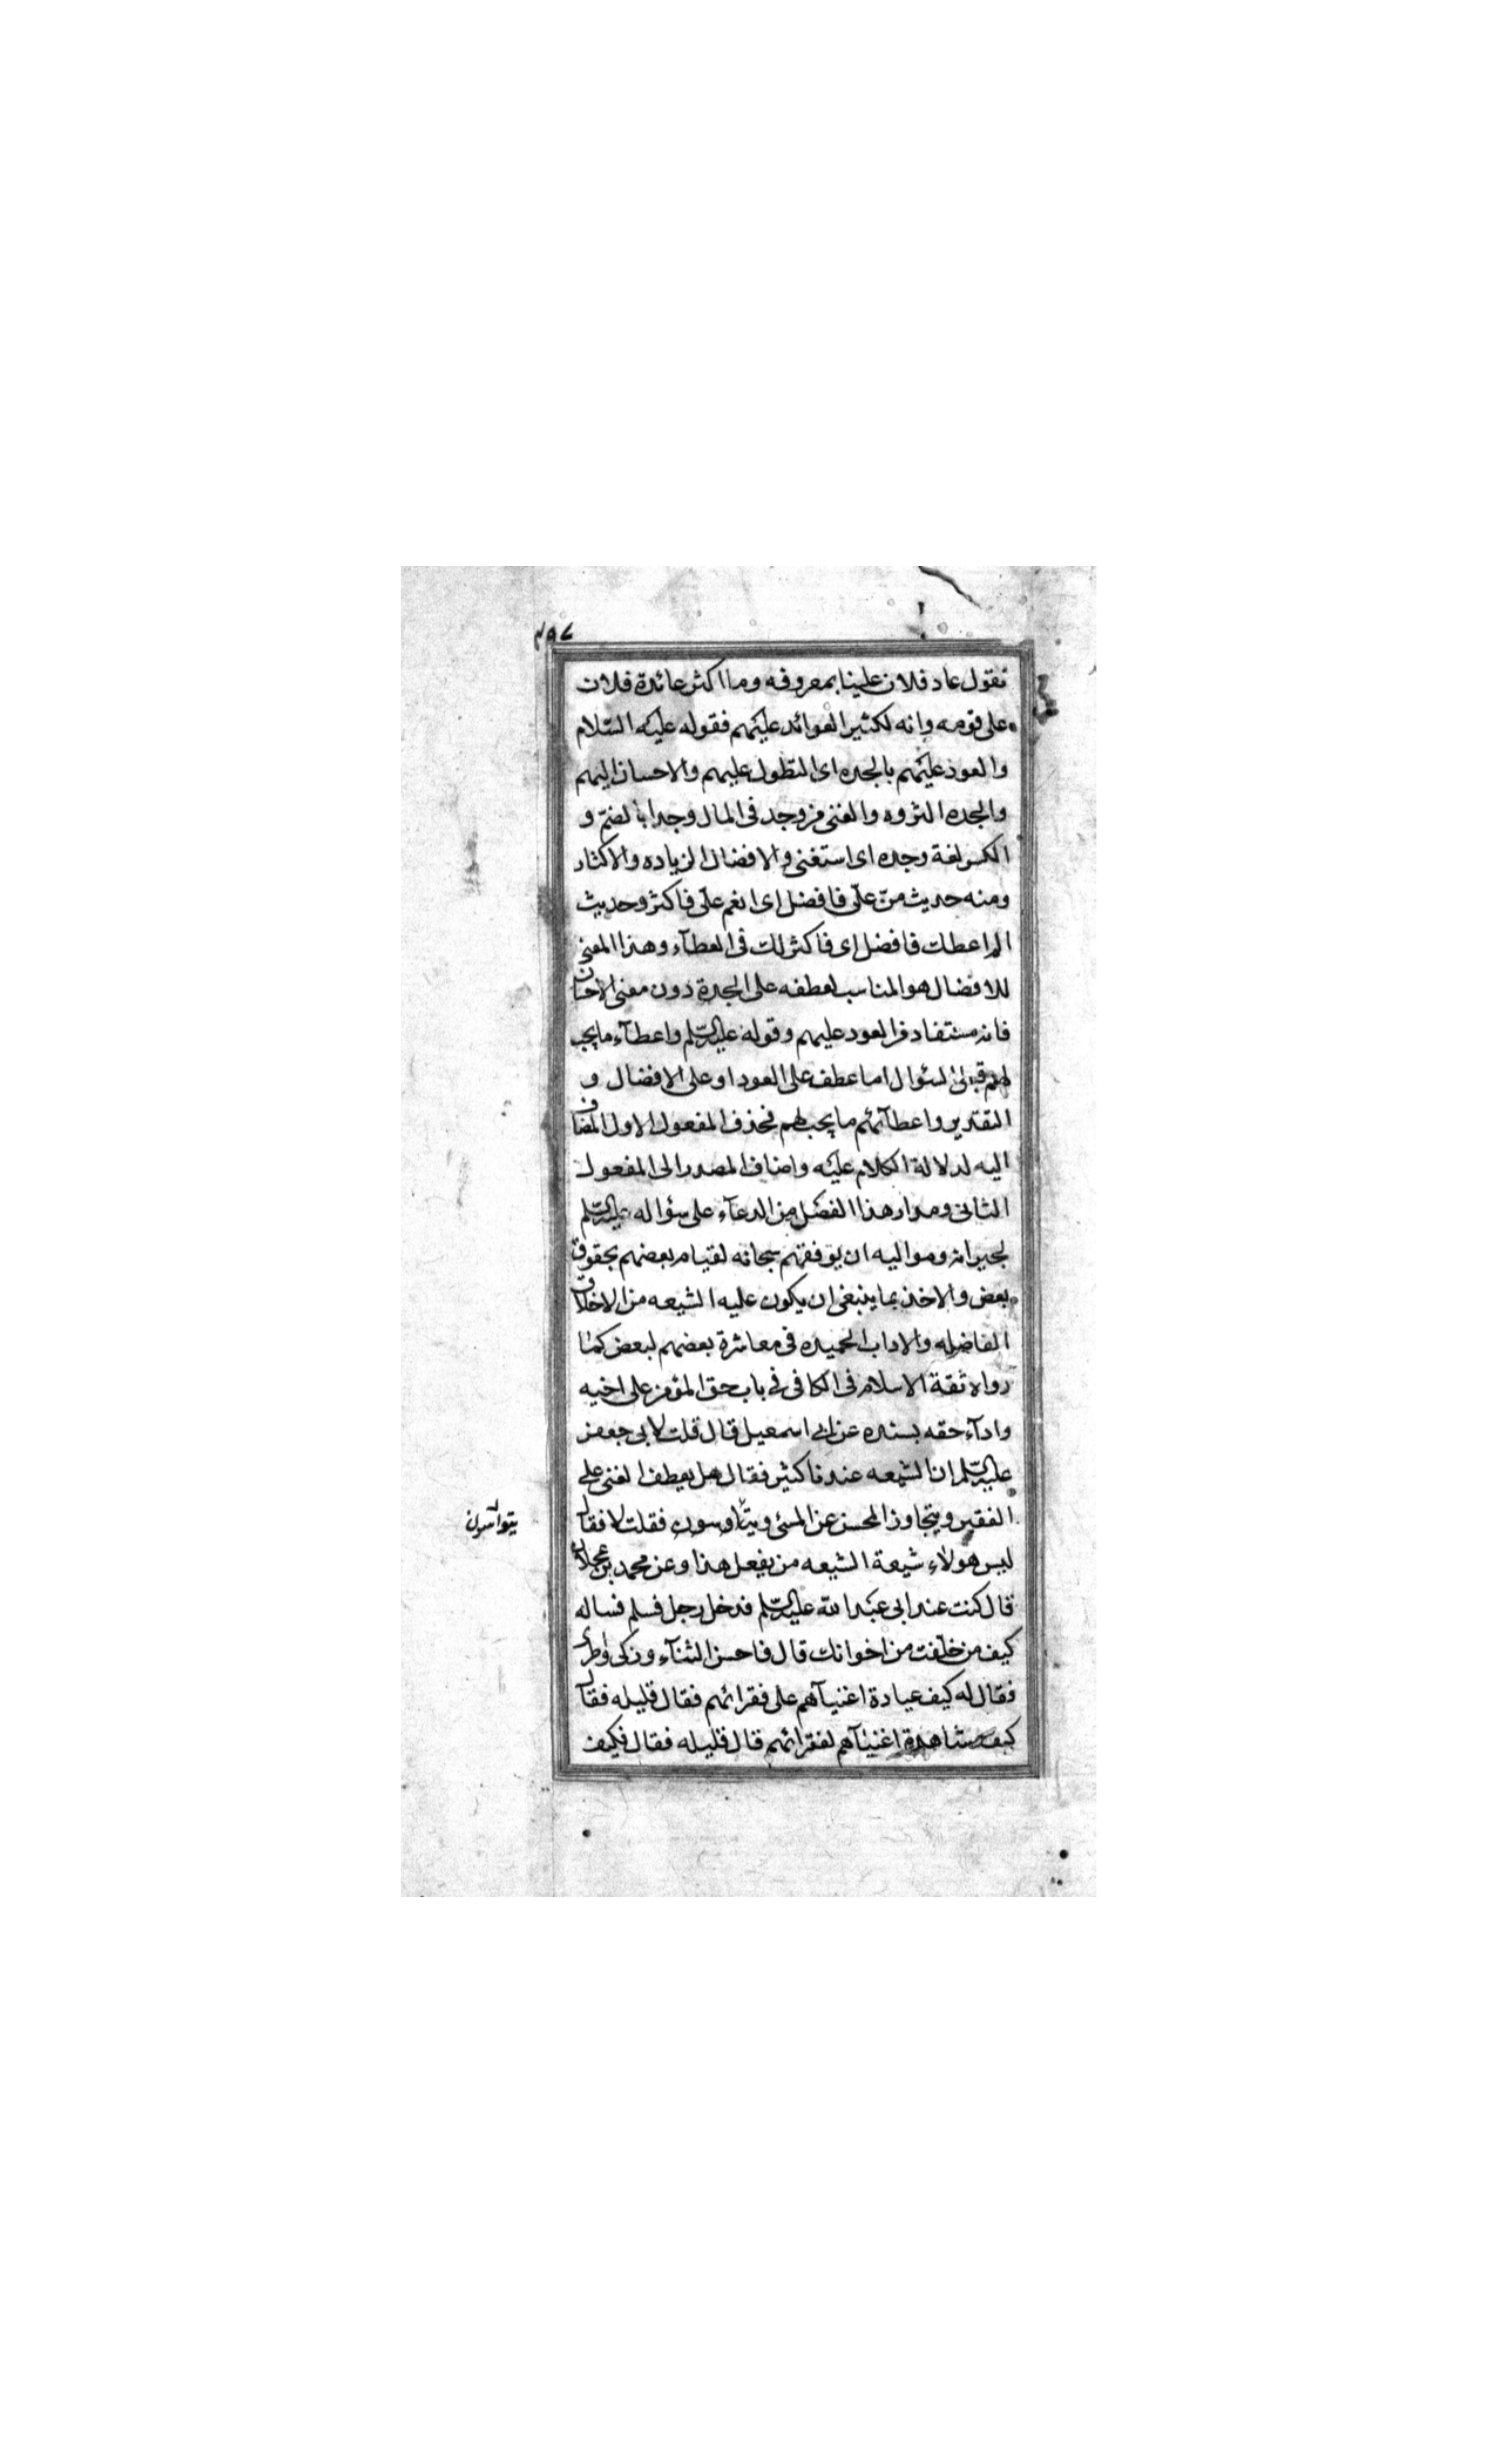 ٣٩٧
تقول عاد فلان علينا بمعروفه وما اكثر عائدة فلان
على قومه وانه لكثير العوائد عليهم فقوله عليه السلام
والعود عليهم بالجده اى التطول عليهم والاحسان اليهم
والجده الثروه والغنى من وجد فى المال وجدا بالضم و
الكسر لغة وجده اى استغنى والافضال الزياده والاكثار
ومنه حديث منّ علىّ فافضل اى انعم علىّ فاكثر وحديث
الم اعطك فافضل اى فاكثر لك فى العطآء وهذا المعنى
للافضال هو المناسب لعطفه على الجدة دون معنى الاحسان
فانه مستفاد من العود عليهم وقوله عليه السلم واعطآء ما يجب
لهم قبل السئوال اما عطف على العود او على الافضال و
التقدير واعطآئهم ما يجب لهم فحذف المفعول الاول المضاف
اليه لدلالة الكلام عليه واضاف المصدر الى المفعول
الثانى ومدار هذا الفصل من الدعآء على سؤاله عليه السلم
لجيرانه ومواليه ان يوفقهم سبحانه لقيام بعضهم بحقوق
بعض والاخذ بما ينبغى ان يكون عليه الشيعه من الاخلاق
الفاضله والاداب الحميده فى معاشرة بعضهم لبعض كما
رواه ثقة الاسلام فى الكافى فى باب حق المؤمن على اخيه
وادآء حقه بسنده عن ابى اسمعيل قال قلت لابى جعفر
عليه السلم ان الشيعه عندنا كثير فقال هل يعطف الغنى على
الفقير ويتجاوز المحسن عن المسئ ويتاوسون فقلت لا فقال
يتواسون
ليس هولاء شيعة الشيعه من يفعل هذا وعن محمد بن عجلان
قال كنت عند ابى عبد الله عليه السلم فدخل رجل فسلم فساله
كيف من خلفت من اخوانك قال فاحسن الثنآء وزكى واطرى
فقال له كيف عيادة اغنيآهم على فقرائهم فقال قليله فقال
كيف مشاهدة اغنيآهم لفقرائهم قال قليله فقال فكيف